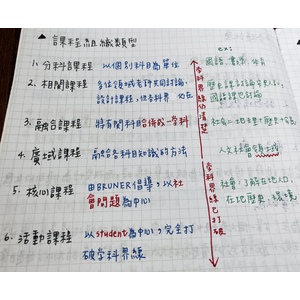 ▲ 課程組織類型
ex:
1. 分科課程 以個別科目為單位 國語、數學、體育
2. 相關課程 多位領域老師共同討論,
設計課程,但學科界 仍在
國語課也討論
3. 融合課程 將有關科目合併成一學科 社會=地理+歷史+公民
4. 廣域課程 融合各科目知識的方法 人文社會領域
5. 核心課程 由BRUNER倡導,以社
會問題為中心
社會:了解在地人口,
在地歷史、環境
6. 活動課程 以student為中心,完全打
破學科界線
學科界線仍清楚
學科界線已打破